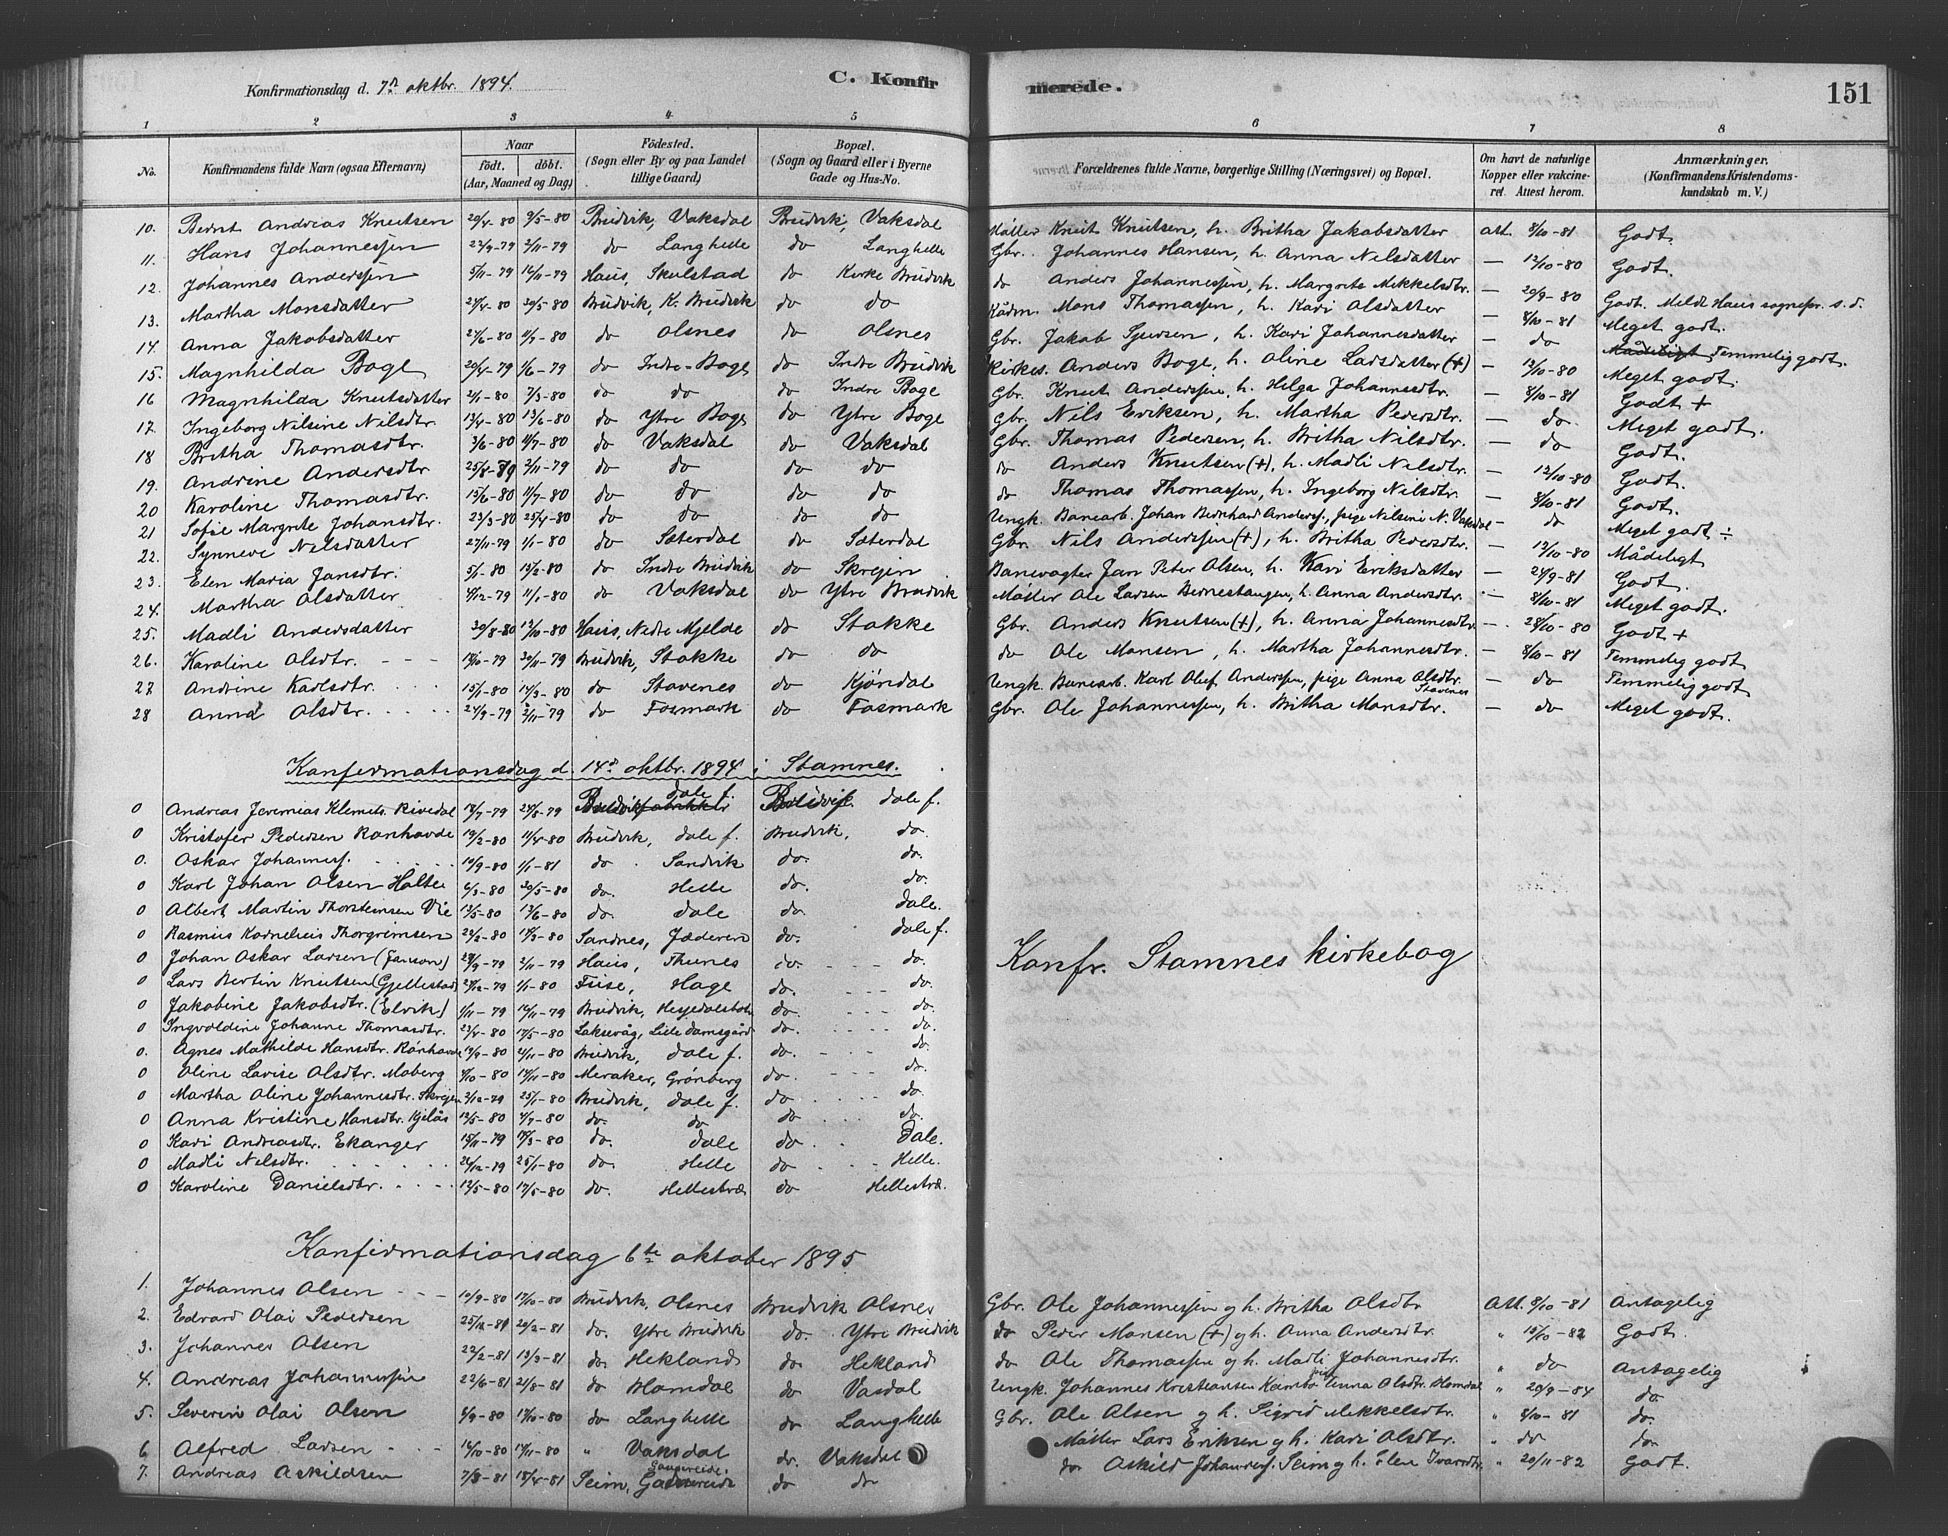 Konfirmationsdag d. 7de oktbr. 1894. C. Konfirmerede. 151
1 2 3 4 5 6 7 8
No. Konfirmandens fulde Navn (ogsaa Efternavn) Naar födt. döbt. (Aar, Maaned og Dag) Födested. (Sogn eller By og paa Landet tillige Gaard) Bopæl. (Sogn og Gaard eller i Byerne Gade og Hus-No. Forældrenes fulde Navne, borgerlige Stilling (Næringsvei) og Bopæl. Om havt de naturlige Kopper eller vakcineret. Attest herom. Anmærkninger. (Konfirmandens Kristendomskundskab m. V.)
10. Bernt Andreas Knutsen 20/4-80 9/5-80 Brudvik, Vaksdal Brudvik, Vaksdal Møller Knut Knutsen, h. Britha Jakobsdatter att. 8/10-81 Godt.
11. Hans Johannessen 22/9-79 2/11-79 do Langhelle do Langhelle Gbr. Johannes Hansen, h. Anna Nilsdatter — 12/10-80 Godt.
12. Johannes Anderssen 5/11-79 16/11-79 Haus, Skulstad do Kirke Brudvik do Anders Johannessen, h. Margrete Mikkelsdtr. — 20/9-80 Godt. Meldt Haus sognepr. s. d.
13. Martha Monsdatter 27/4-80 30/5-80 Brudvik, K. Brudvik do do Kådm. Mons Thomassen, h. Kari Olsdatter — 8/10-81 Meget godt.
14. Anna Jakobsdatter 27/6-80 11/7-80 do Olsnes do Olsnes Gbr. Jakob Sjursen, h. Kari Johannesdatter — do Mådeligt Temmelig godt.
15. Magnhilda Boge 20/4-79 1/6-79 do Indre-Boge do Indre Brudvik Kirkes. Anders Boge, h. Oline Larsdatter (+) — 12/10-80 Meget godt.
16 Magnhilda Knutsdatter 2/1-80 7/3-80 do do do Indre Boge Gbr. Knut Anderssen, h. Helga Johannesdtr. — 8/10-81 Godt +
17. Ingeborg Nilsine Nilsdtr. 13/4-80 13/6-80 do Ytre Boge do Ytre Boge Gbr. Nils Eriksen, h. Martha Pedersdtr. — do Meget godt.
18 Britha Thomasdtr. 3/6-80 11/7-80 do Vaksdal do Vaksdal Gbr. Thomas Pedersen, h. Britha Nilsdtr. — do Godt.
19. Andrine Andersdtr 25/8-79 2/11-79 do do do do do Anders Knutsen (+), h. Madli Nilsdtr. — 12/10-80 Godt.
20 Karoline Thomasdtr. 13/6-80 11/7-80 do do do do do Thomas Thomassen, h. Ingeborg Nilsdtr. — 8/10-81 Godt.
21 Sofie Margrete Johansdtr. 23/3-80 25/4-80 do do do do Ungk. Banearb. Johan Bernhard Anderss., pige Nilsine N. Vaksdal — do Meget godt ÷
22. Synneve Nilsdatter 27/11-79 1/1-80 do Sæterdal do Sæterdal Gbr. Nils Anderssen (+), h. Britha Pedersdtr. — 12/10-80 Mådeligt
23. Elen Maria Jansdtr. 5/1-80 15/2-80 do Indre Brudvik do Skrejen Banevogter Jan Peter Olsen, h. Kari Eriksdatter — 24/9-81 Godt.
24. Martha Olsdatter 4/12-79 11/1-80 do Vaksdal do Ytre Brudvik Møller Ole Larsen Bernestangen, h. Anna Andersdtr. — 8/10-81 Meget godt.
25. Madli Andersdatter 30/8-80 17/10-80 Haus, Nedre Mjelde do Stokke Gbr. Anders Knutsen (+), h. Anna Johannesdtr. — 28/10-80 Godt +
26. Karoline Olsdtr. 19/10-79 30/11-79 Brudvik, Stokke do do do Ole Monsen, h. Martha Johannesdtr. — 8/10-81 Temmelig godt
27 Andrine Karlsdtr. 15/1-80 14/3-80 do Stavenes do Kjøndal Ungk. Banearb. Karl Oluf Andersen, pige Anna Olsdtr. Stavenes — do Temmelig godt
28 Anna Olsdtr. 24/9-79 2/11-79 do Fosmark do Fosmark Gbr. Ole Johannessen, h. Britha Monsdtr. — do Meget godt.
Konfirmationsdag d. 14de oktbr. 1894 i Stamnes.
0 Andreas Jeremias Klemets. Rivedal 14/7-79 24/8-79 dale f. Brudvik dale f.
0 Kristofer Pedersen Ranhavde 19/2-80 11/4-80 Brudvik, dale f. Brudvik, do.
0. Oskar Johanness. 19/9-80 1/1-81 do. Sandvik do. do.
0 Karl Johan Olsen Helle 6/3-80 20/5-80 do. Helle do. do.
0 Albert Martin Thorsteinsen Vie 12/5-80 13/6-80 do. dale do. dale.
0 Rasmus Kornelius Thorgrimsen 22/2-80 14/3-80 Sandnes, Jæderen do. dale f.
0 Johan Oskar Larsen (Janson) 29/9-79 2/11-79 Haus, Thunes do. do.
0 Lars Bertin Knutsen (Gjellestad) 21/12-79 1/1-80 Fuse, Hage do. do.
0 Jakobine Jakobsdtr. (Elvik) 1/11-79 16/11-79 Brudvik, Hesjedalsbotn do. do.
0 Ingvoldine Johanne Thomasdtr. 23/4-80 17/5-80 Laksevåg, Lille Damsgård do. do.
0. Agnes Mathilde Hansdtr. Rønhovde 19/9-80 21/11-80 Brudvik, dale f. do. do.
0 Oline Lovise Olsdtr. Moberg 9/10-80 14/11-80 Meraker, Grønberg do. do.
0 Martha Oline Johannesdtr. Skrejen 2/12-79 25/1-80 Brudvik, dale f. do do.
0 Anna Kristine Hansdtr. Kjelås 12/5-80 4/7-80 do. do do do.
0 Kari Andreasdtr. Ekanger 15/11-79 17/5-80 do. dale do Dale.
0 Madli Nilsdtr. 26/12-79 25/1-80 do. Helle do Helle.
0 Karoline Danielsdtr. 12/5-80 17/5-80 do. Hellestræ do Hellestræ.
Konfr. Stamnes kirkebog
Konfirmationsdag 6te oktober 1895
1. Johannes Olsen 10/9-80 17/10-80 Brudvik, Olsnes Brudvik Olsnes Gbr. Ole Johannessen og h. Britha Olsdtr Att. 8/10-81 Antagelig
2. Edvard Olai Pedersen 25/12-80 20/2-81 do. Ytre Brudvik do. Ytre Brudvik do Peder Monsen (+) og h. Anna Andersdtr. " 15/10-82 Godt.
3. Johannes Olsen 22/2-81 13/3-81 do. Hekland do Hekland do Ole Thomassen og h. Madli Johannesdtr. " do Antagelig
4. Andreas Johannessen 22/6-81 21/8-81 do Homdal do Vasdal Ungk. Johannes Kristiansen Kambo, pige Anna Olsdtr. Homdal " 20/9-84 do
5. Severin Olai Olsen 4/9-80 17/10-80 do Langhelle do Langhelle Gbr. Ole Olsen og h. Sigrid Mikkelsdtr. " 8/10-81 do.
6 Alfred Larsen 14/10-80 17/11-80 " Vaksdal do. Vaksdal Møller Lars Eriksen og h. Kari Olsdtr. " do do
7. Andreas Askildsen 7/3-81 18/4-81 Seim, Gaustreide do do do Askild Johanness. Seim og h. Elen Ivarsdtr. " 20/11-82 Godt.